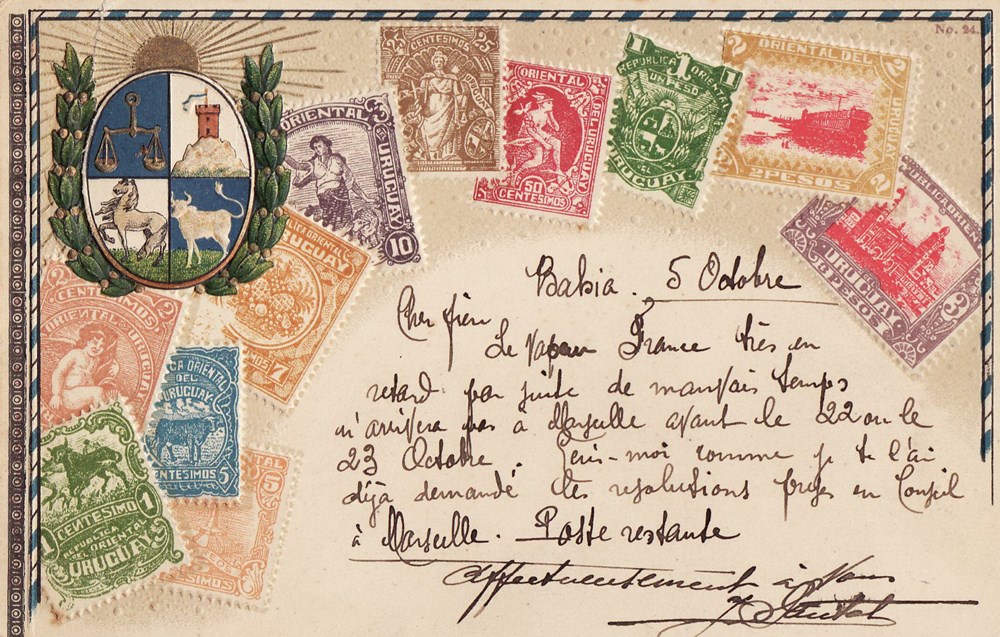 No. 24.
25 CENTESIMOS 25
ORIENTAL
DEL URUGUAY
50
CENTESIMOS
1 1 1
REPUBLICA ORIENTAL
UN PESO
DEL
URUGUAY
2 ORIENTAL DEL 2
URUGUAY
2 2 PESOS 2
REPUBLICA ORIENTAL
URUGUAY
3 PESOS 3
ORIENTAL
URUGUAY
10
REPUBLICA ORIENTAL
URUGUAY
7
2
CENTESIMOS
2
ORIENTAL
URUGUAY
ORIENTAL
DEL
URUGUAY
CENTESIMOS 5
5
1 CENTESIMO 1
REPUBLICA
DEL ORIENTAL
URUGUAY
Bahia. 5 Octobre
Cher frère
Le Vapeur France très en
retard par suite de mauvais temps
n'arrivera pas à Marseille avant le 22 ou le
23 Octobre. Ecris-moi comme je te l'ai
déjà demandé les resolutions prises en Conseil
à Marseille. Poste restante
affectueusement à vous